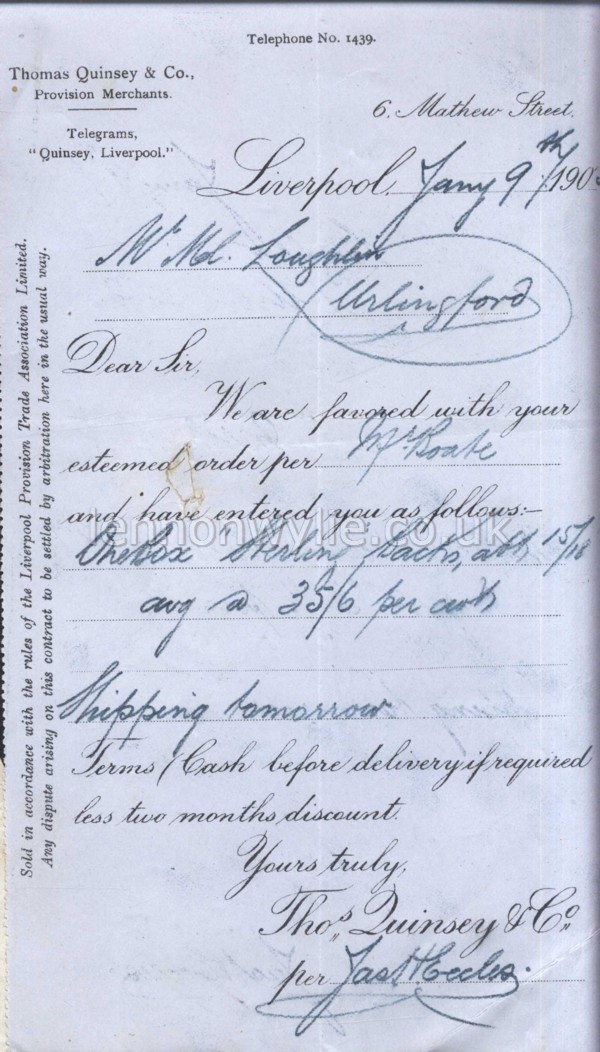 Telephone No. 1439.
Thomas Quinsey & Co.,
Provision Merchants.
Telegrams,
"Quinsey, Liverpool."
6, Mathew Street,
Liverpool, Jany 9th 190
Mr Ml. Loughlin
Urlingford
Dear Sir,
We are favored with your
esteemed order per Mr Roate
and have entered you as follows:-
One Box Sterling backs, avg 15/18
avg @ 35/6 per cwt
Shipping tomorrow
Terms (Cash before delivery if required
less two months discount.
Yours truly,
Thos. Quinsey & Co.
per Jas H Eccles.
Sold in accordance with the rules of the Liverpool Provision Trade Association Limited.
Any dispute arising on this contract to be settled by arbitration here in the usual way.
lennonwylie.co.uk